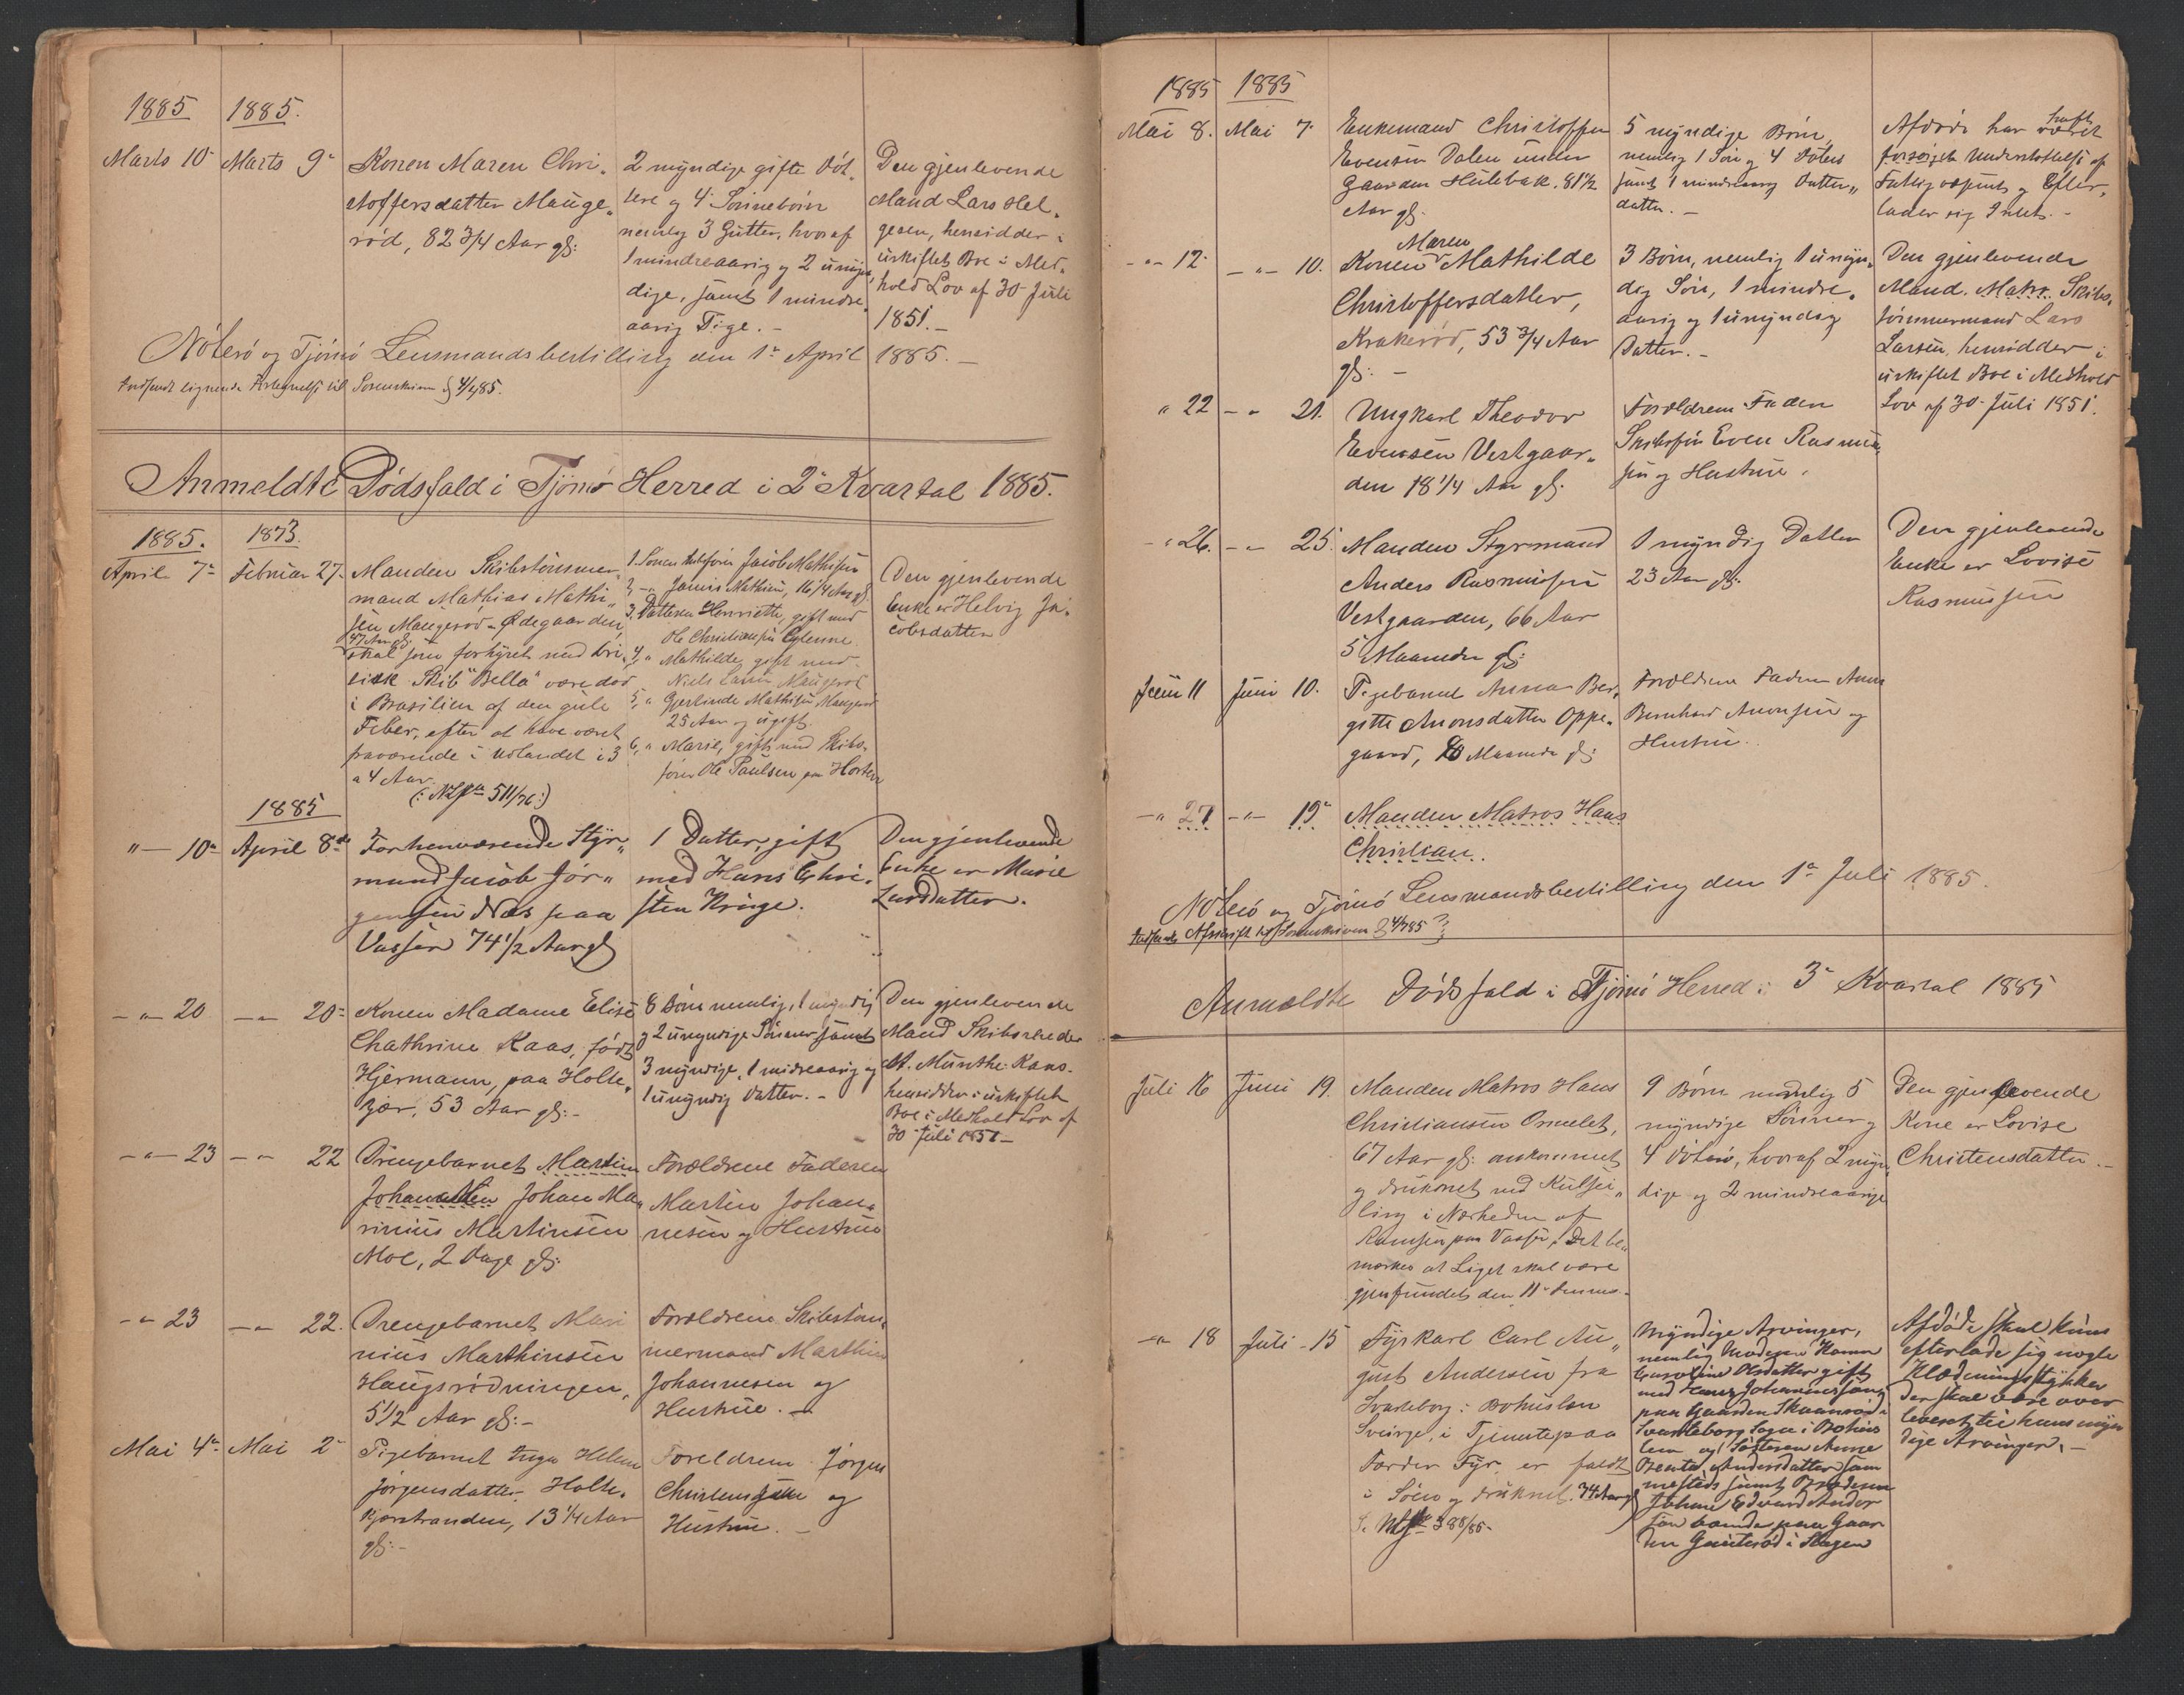 1885 1885.
Marts 10 Marts 9 Konen Maren Chri-
stoffersdatter Mauge-
rød, 82 3/4 Aar gl:
2 myndige gifte Døt-
tere og 4 Sønnebørn
nemlig 3 Gutter, hvoraf
1 mindreaarig og 2 umyn-
dige, samt 1 mindre
aarig Pige. -
Den gjenlevende
Mand Lars Hel-
gesen, hensidder i
uskiftet Boe i Med-
hold Lov af 30 Juli
1851. -
Nøterø og Tjømø Lensmandsbestilling den 1ste April 1885. -
Indsendt lignende Fortegnelse til Sorenskriveren 4/4 85.
Anmeldte Dødsfald i Tjømø Herred i 2det Kvartal 1885.
1885. 1873.
April 7 Februar 27 Manden Skibstømmer
mand Mathias Mathi-
sen Maugerød-Ødegaarden
47 Aar gl.
skal som forhyret med bri-
tisk Skib "Bella" være død
i Brasilien af den gule
Feber, efter at have været
fraværende i Udlandet i 3
a 4 Aar.
(: 511/76 :)
1. Sønnen Skibsfører Jacob Mathisen
2 -"- Mathisen, 16 1/4 Aar gl
3, Datteren Henriette, gift med
Ole Christiansen
4, " Mathilde gift med
Niels Larsen Maugerød
5, " Gjerlinde Mathisen Maugerød
25 Aar og ugift.
6, " Marie, gift med Skibs-
fører Ole Paulsen paa Horten
Den gjenlevende
Enke er Helvig Ja-
cobsdatter
1885
" — 10 April 8de Forhenværende Styr-
mand Jacob Jør-
gensen Næs paa
Vasser 74 1/2 Aar gl
1 Datter, gift
med Hans Chri-
sten Krøge.
Den gjenlevende
Enke er Marie
Larsdatter.
-"- 20 -"- 20 Konen Madame Elise
Chathrine Kaas, født
Hjermann, paa Holte-
kjær, 53 Aar gl:-
8 Børn nemlig, 1 myndig
og 2 umyndige Sønner, samt
3 myndige, 1 midreaarig og
1 umyndig Datter. -
Den gjenlevende
Mand Skibsreder
M. Munthe-Kaas-
hensidder i uskiftet
Boe i Medhold Lov af
30 Juli 1851 -
-"- 23 -"- 22 Drengebarnet Martin
Johan Ma-
rinius Martinsen
Moe, 2 Dage gl:
Forældrene Faderen
Martin Johan-
nesen og Hustrue
-"- 23 -"- 22. Drengebarnet Mari
nius Marthinsen
Haugsrødningen,
5 1/2 Aar gl:-
Forældrene Skibstøm-
mermand Marthin
Johannesen og
Hustrue. -
Mai 4 Mai 2 Pigebarnet Inga Helene
Jørgensdatter, Holte-
kjærstranden, 13 1/4 Aar
gl:-
Forældrene Jørgen
Christensen og
Hustrue. -
1885 1885
Mai 8. Mai 7 Enkemand Christoffer
Evensen Dalen under
Gaarden Hulebak. 81 1/2
Aar gl.
5 myndige Børn,
nemlig 1 Søn og 4 Døtre
samt 1 mindreaarig Datter-
datter. -
Afdøde har havt
Understøttelse af
Fattigvæsenet og Efter-
lader sig Intet. -
-"- 12 -"- 10. Konen Maren Mathilde
Christoffersdatter,
Krakerød, 53 3/4 Aar
gl: -
3 Børn, nemlig 1 umyn-
dig Søn, 1 mindre-
aarig og 1 umyndig
Datter. -
Den gjenlevende
Mand. Matr. Skibs-
tømmermand Lars
Larsen, hensidder i
uskiftet Boe i Medhold
Lov af 30 Juli 1851.
" 22 -"- 21. Ungkarl Theodor
Evensen Vestgaar-
den 18 1/4 Aar gl.
Forældrene Faden
Skibsfør Even Rasmus-
sen og Hustrue.
-"- 26. -"- 25. Manden Styrmand
Anders Rasmussen
Vestgaarden, 66 Aar
5 Maaneder gl:
1 myndig Datter
23 Aar gl:
Den gjenlevende
Enke er Lovise
Rasmussen
Juni 11 Juni 10. Pigebarnet Anna Ber-
gitte Amonsdatter Oppe-
gaard, 10 Maaneder gl:
Forældrene Faderen Amon
Bernhard Amonsen og
Hustrue.
-"- 27 -"- 19 Manden Matros Hans
Christian.
Nøterø og Tjømø Lensmandsbestilling den 1ste Juli 1885.
Indsendt Afskrift til Sorenskriveren 4/7 85
Anmeldte Dødsfald i Tjømø Herred i 3die Kvartal 1885
Juli 16 Juni 19. Manden Matros Hans
Christiansen Ormelet,
67 Aar gl: omkommet
og druknet ved Kulsei-
ling i Nærheden af
Ramsøen paa Vasser. Det be-
mærkes at Liget skal være
gjenfundet den 11
9 Børn nemlig 5
myndige Sønner og
4 Døtre, hvoraf 2 myn-
dige og 2 mindreaarige
Den gjenlevende
Kone er Lovise
Christensdatter. -
-"- 18 Juli 15 Fyrkarl Carl Au-
gust Andersen fra
Svarteborg i Bohuslen
Sverige, i Tjeneste paa
Færder Fyr, er faldt
i Søen og druknet. 34 Aar gl
388/85-
Myndige Arvinger,
nemlig Moderen Hanna
Caroline Olsdatter gift
med Johannessøn
paa Gaarden Skaanrød i
Svarteborg Sogn i Bohus
len og Søsteren Anna
Beata Andersdatter sam
mesteds samt Broderen
Johan Edvard Ander
sen boende paa Gaar
den Gunterød i Slagen
Afdøde skal kuns
efterlade sig nogle
Klædningsstykker
der skal være over
leveret til hans myn
dige Arvinger. -